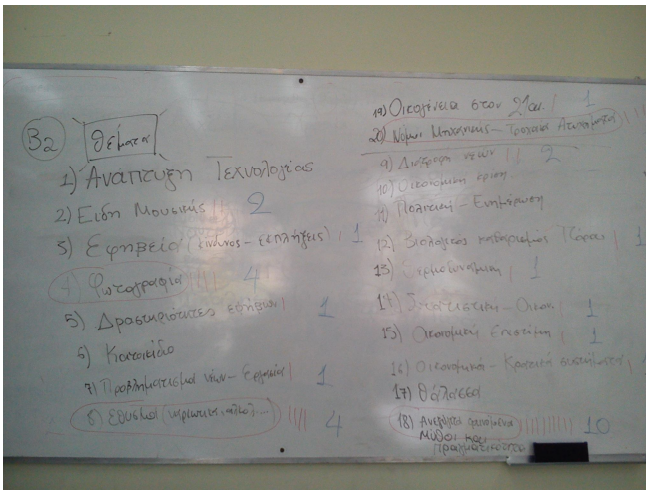 B2 Θέματα
1) Ανάπτυξη Τεχνολογίας
2) Είδη Μουσικής || 2
3) Εφηβεία (κίνδυνοι - εκπλήξεις) | 1
4) Φωτογραφία |||| 4
5) Δραστηριότητες εφήβων | 1
6) Κατοικίδιο
7) Προβληματισμοί νέων - Εργασία | 1
8) Εθισμοί |||| 4
19) Οικογένεια στον 21ο αι. | 1
20) Νόμοι Μηχανικής - Τροχαία Ατυχήματα
9) Διατροφή νέων || 2
10) Οικονομική κρίση
11) Πολιτική - Ενημέρωση
12) Βιολογικός καθαρισμός Πάρου | 1
13) Θερμοδυναμική | 1
14) Στατιστική - Οικον. | 1
15) Οικονομική Επιστήμη | 1
16) Οικονομικά - συστήματα 1
17) Θάλασσα
18) Ανεξήγητα φαινόμενα |||||||||| 10
Μύθοι και
πραγματικότητα